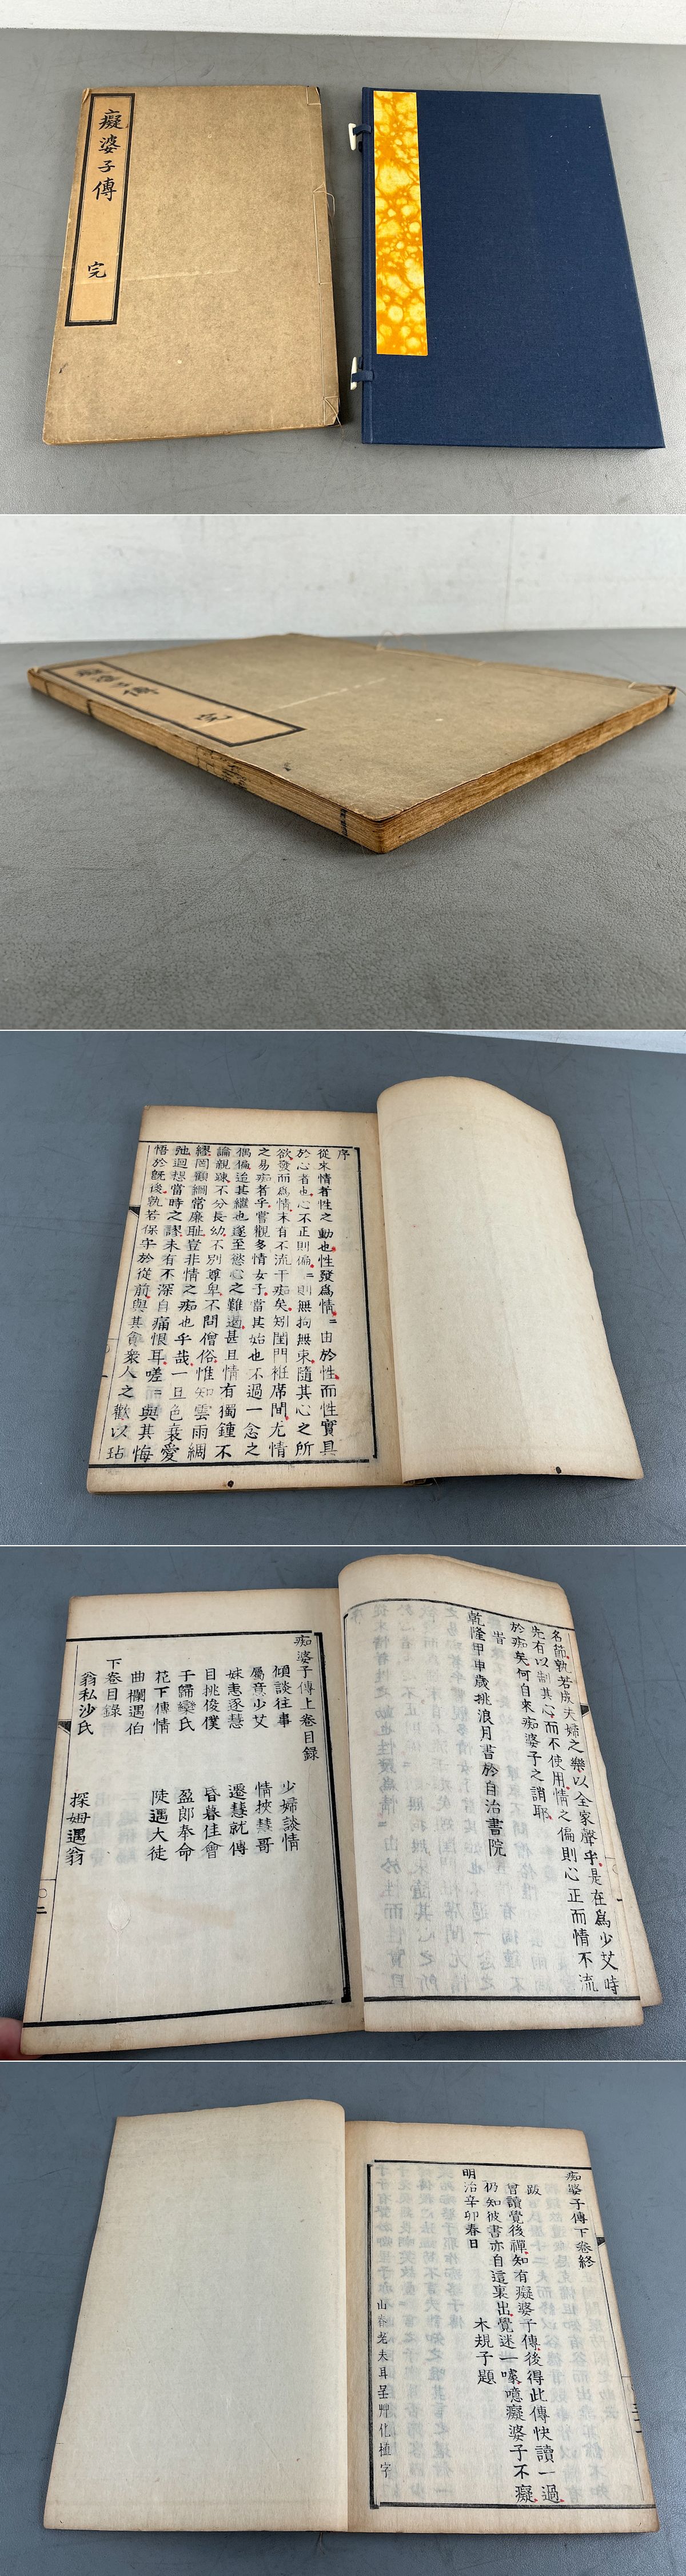 癡婆子傳
完
序
從來情者性之動也性發爲情〻由於性而性實具
於心者也心不正則偏〻則無拘無束隨其心之所
欲發而爲情未有不流于痴矣矧閨門袵席間尤情
之易痴者乎嘗觀多情女子當其始也不過一念之
偶偏迨其繼也遂至慾心之難遏甚且情有獨鍾不
論親疎不分長幼不別尊卑不問僧俗惟知雲雨綢
繆罔顧綱常廉耻豈非情之痴也乎哉一旦色衰愛
弛迴想當時之謬未有不深自痛恨耳嗟〻與其悔
悟於既後孰若保守於從前與其貪衆人之歡以玷
名節孰若成夫婦之樂以全家聲乎是在爲少艾時
先有以制其心而不使用情之偏則心正而情不流
於痴矣何自來痴婆子之誚耶
旹
乾隆甲申歲挑浪月書於自治書院
痴婆子傳上卷目錄
傾談往事 少婦談情
屬意少艾 情挾慧哥
妹恚逐慧 遷慧就傳
目挑俊僕 昏暮佳會
于歸欒氏 盈郎奉命
花下傳情 陡遇大徒
曲攔遇伯
下卷目錄
翁私沙氏 探姆遇翁
痴婆子傳下卷終
跋
曾讀覺後禪知有癡婆子傳後得此傳快讀一過
仍知彼書亦自這裏出覺迷一噱噫癡婆子不癡
木規子題
明治辛卯春日